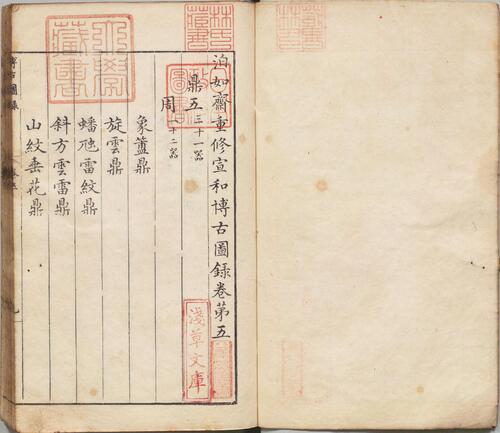 泊如齋重修宣和博古圖錄卷第五
鼎五三十一器
周一十二器
象簠鼎
旋雲鼎
蟠虺雷紋鼎
斜方雲雷鼎
山紋垂花鼎
博古圖錄
林氏藏書
淺草文庫